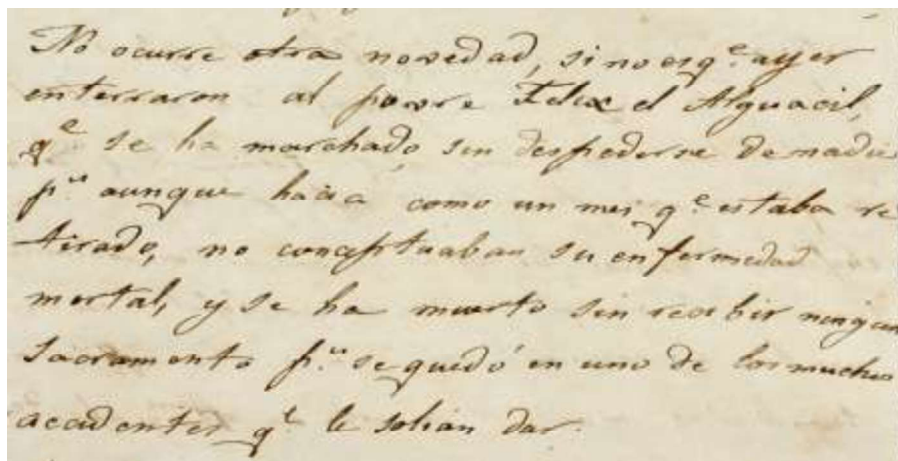 No ocurre otra novedad, sino es q.e ayer
enterraron al povre Felix el Alguacil,
q.e se ha marchado sin despedirse de nadie
p.s aunque hacia como un mes q.e estaba re
tirado, no conceptuaban su enfermedad
mortal, y se ha muerto sin recibir ningun
Sacramento p.s se quedó en uno de los muchos
accidentes q.e le solian dar.